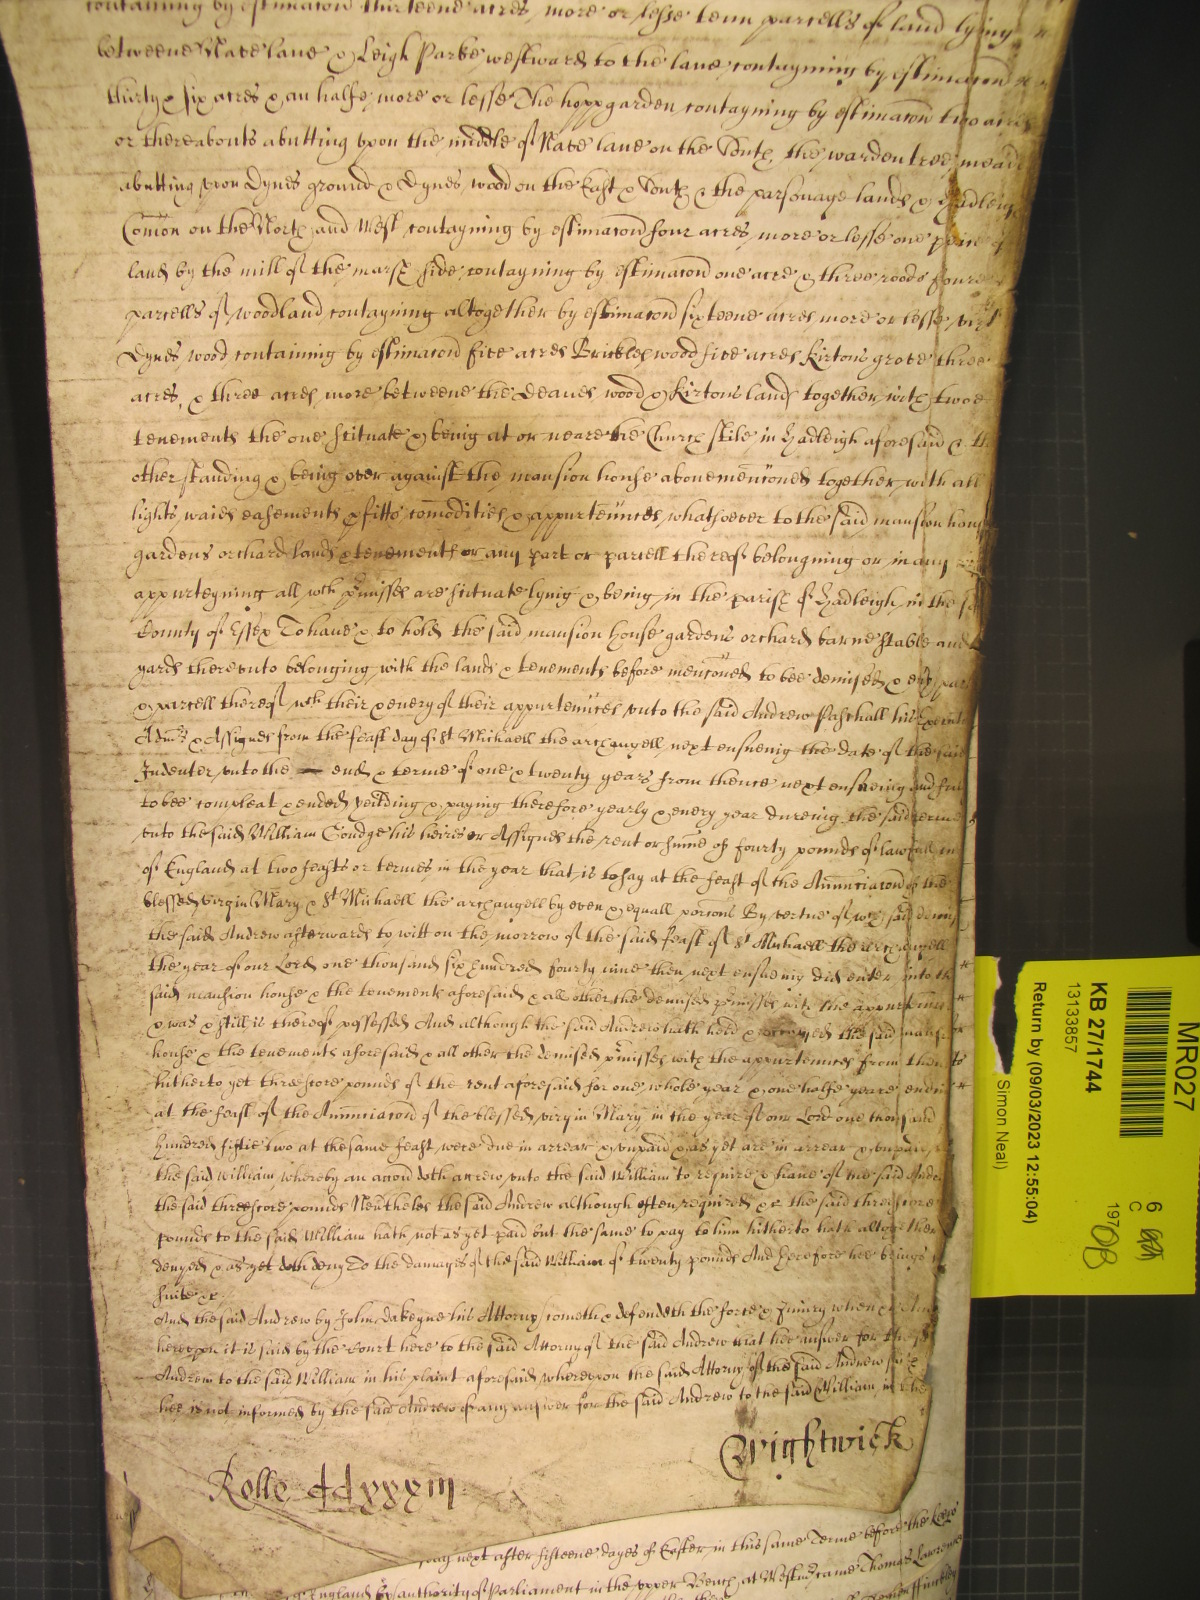 containing by estimacon thirteene acres more or lesse tenn parcells of land lying
betweene Nate lane & Leigh Parke westward to the lane contayning by estimacon
thirty & six acres & an halfe more or lesse The hoppgarden contayning by estimacon two acres
or thereabouts abutting upon the middle of Nate lane on the South, the wardentree meade
abutting upon Dynes ground & Dynes wood on the East & South & the parsonage lands & Hadleigh
Comon on the North and West contayning by estimacon four acres more or lesse one peice of
land by the mill of the marsh side contayning by estimacon one acre & three roods foure
parcells of woodland contayning altogether by estimacon sixteene acres more or lesse vizt
Dynes wood containing by estimacon five acres Brickles wood five acres Kirtons grove three
acres, & three acres more betweene the Deanes wood & Kirtons land together with twoe
tenements the one scituate & being at or neare the Church stile in Hadleigh aforesaid & th
other standing & being over against the mansion house abovementioned together with all
lights waies easements & fitts comodities & appurtennces whatsoever to the said mansion hous
gardens orchard lands & tenements or any part or parcell thereof belongning or in any
appurteyning all wch pmisses are scituate lynig & being in the parish of Hadleigh in the sd
County of Essex To have & to hold the said mansion house gardens orchard barne stable and
yards thereunto belonging with the lands & tenements before menconed to bee demised & evy part
& parcell thereof wth their & every of their appurtennces unto the said Andrew Paschall his Execut
Admrs & Assignes from the feast day of St Michaell the archangell next ensueing the date of the said
Indenter, unto the end & terme of one & twenty years from thence next ensueing and fully
to bee compleat & ended yeilding & paying therefore yearly & every year dureing the said terme
unto the said William Goudge his heires or Assignes the rent or sume of fourty pounds of lawfull m
of England at two feasts or termes in the year that is to say at the feast of the Anunciacon of the
blessed virgin Mary & St Michaell the archangell by even & equall porcons By vertue of wch said demis
the said Andrew afterwards to witt on the morrow of the said feast of St Michaell the archangell
the year of our Lord one thousand six hundred fourty nine then next ensueing did enter into th
said mansion house & the tenements aforesaid & all other the demised pmisses with the appurtennces
& was & still is thereof possessed And although the said Andrew hath held & occupyed the said mansi
house & the tenements aforesaid & all other the demised pmisses with the appurtennces from then to
hitherto yet threescore pounds of the rent aforesaid for one whole year & one halfe yeare endin
at the feast of the Anunciacon of the blessed virgin Mary in the year of our Lord one thousand
hundred fiftie two at the same feast were due in arrear & unpaid & as yet are in arrear & unpaid
the said William, whereby an accon doth accrew unto the said William to require & have of the said Andrew
the said threescore pounds Nevtheles the said Andrew although often required &c the said threescore
pounds to the said William hath not as yet paid but the same to pay to him hitherto hath altogether
denyed & as yet doth deny To the damages of the said William of twenty pounds And herefore hee brings
suite &c
And the said Andrew by John Dakeyne his Attorny cometh & defendeth the force & Iniury when &c And
hereupon it is said by the Court here to the said Attorny of the said Andrew that hee answer for the sd
Andrew to the said William in his plaint aforesaid whereupon the said Attorny of the said Andrew saith
hee is not informed by the said Andrew of any answer for the said Andrew to the said William in the
Wrightwick
Rolle ddxxxiii
day next after fifteene dayes of Easter in this same Terme before the Keeps
of England by authority of Parliament in the upper Bench at Westmr came Thomas Lawrence
MR027
KB 27/1744
13133857
Return by (09/03/2023 12:55:04)
Simon Neal)
6
C
197